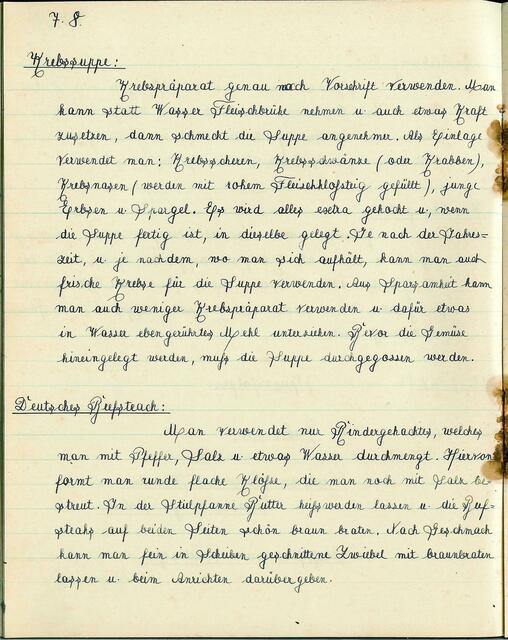 7. 8.
Krebssuppe:
Krebspräparat genau nach Vorschrift verwenden. Man
kann statt Wasser Fleischbrühe nehmen u auch etwas Kraft
zusetzen, dann schmeckt die Suppe angenehmer. Als Einlage
verwendet man: Krebsscheren, Krebsschwänze (oder Krabben),
Krebsnasen (werden mit rohem Fleischklosteig gefüllt), junge
Erbsen u. Spargel. Es wird alles extra gekocht u, wenn
die Suppe fertig ist, in dieselbe gelegt. Je nach der Jahres-
zeit, u. je nachdem, wo man sich aufhält, kann man auch
frische Krebse für die Suppe verwenden. Aus Sparsamkeit kann
man auch weniger Krebspräparat verwenden u. dafür etwas
in Wasser ebengerührtes Mehl unterziehen. Bevor die Gemüse
hineingelegt werden, muß die Suppe durchgegossen werden.
Deutsches Biefsteack:
Man verwendet nur Rindergehacktes, welches
man mit Pfeffer, Salz u. etwas Wasser durchmengt. Hiervon
formt man runde flache Klöße, die man noch mit Salz be-
streut. In der Stielpfanne Butter heißwerden lassen u. die Buf-
steaks auf beiden Seiten schön braun braten. Nach Geschmack
kann man fein in Scheiben geschnittene Zwiebel mit braunbraten
lassen u. beim Anrichten darübergeben.